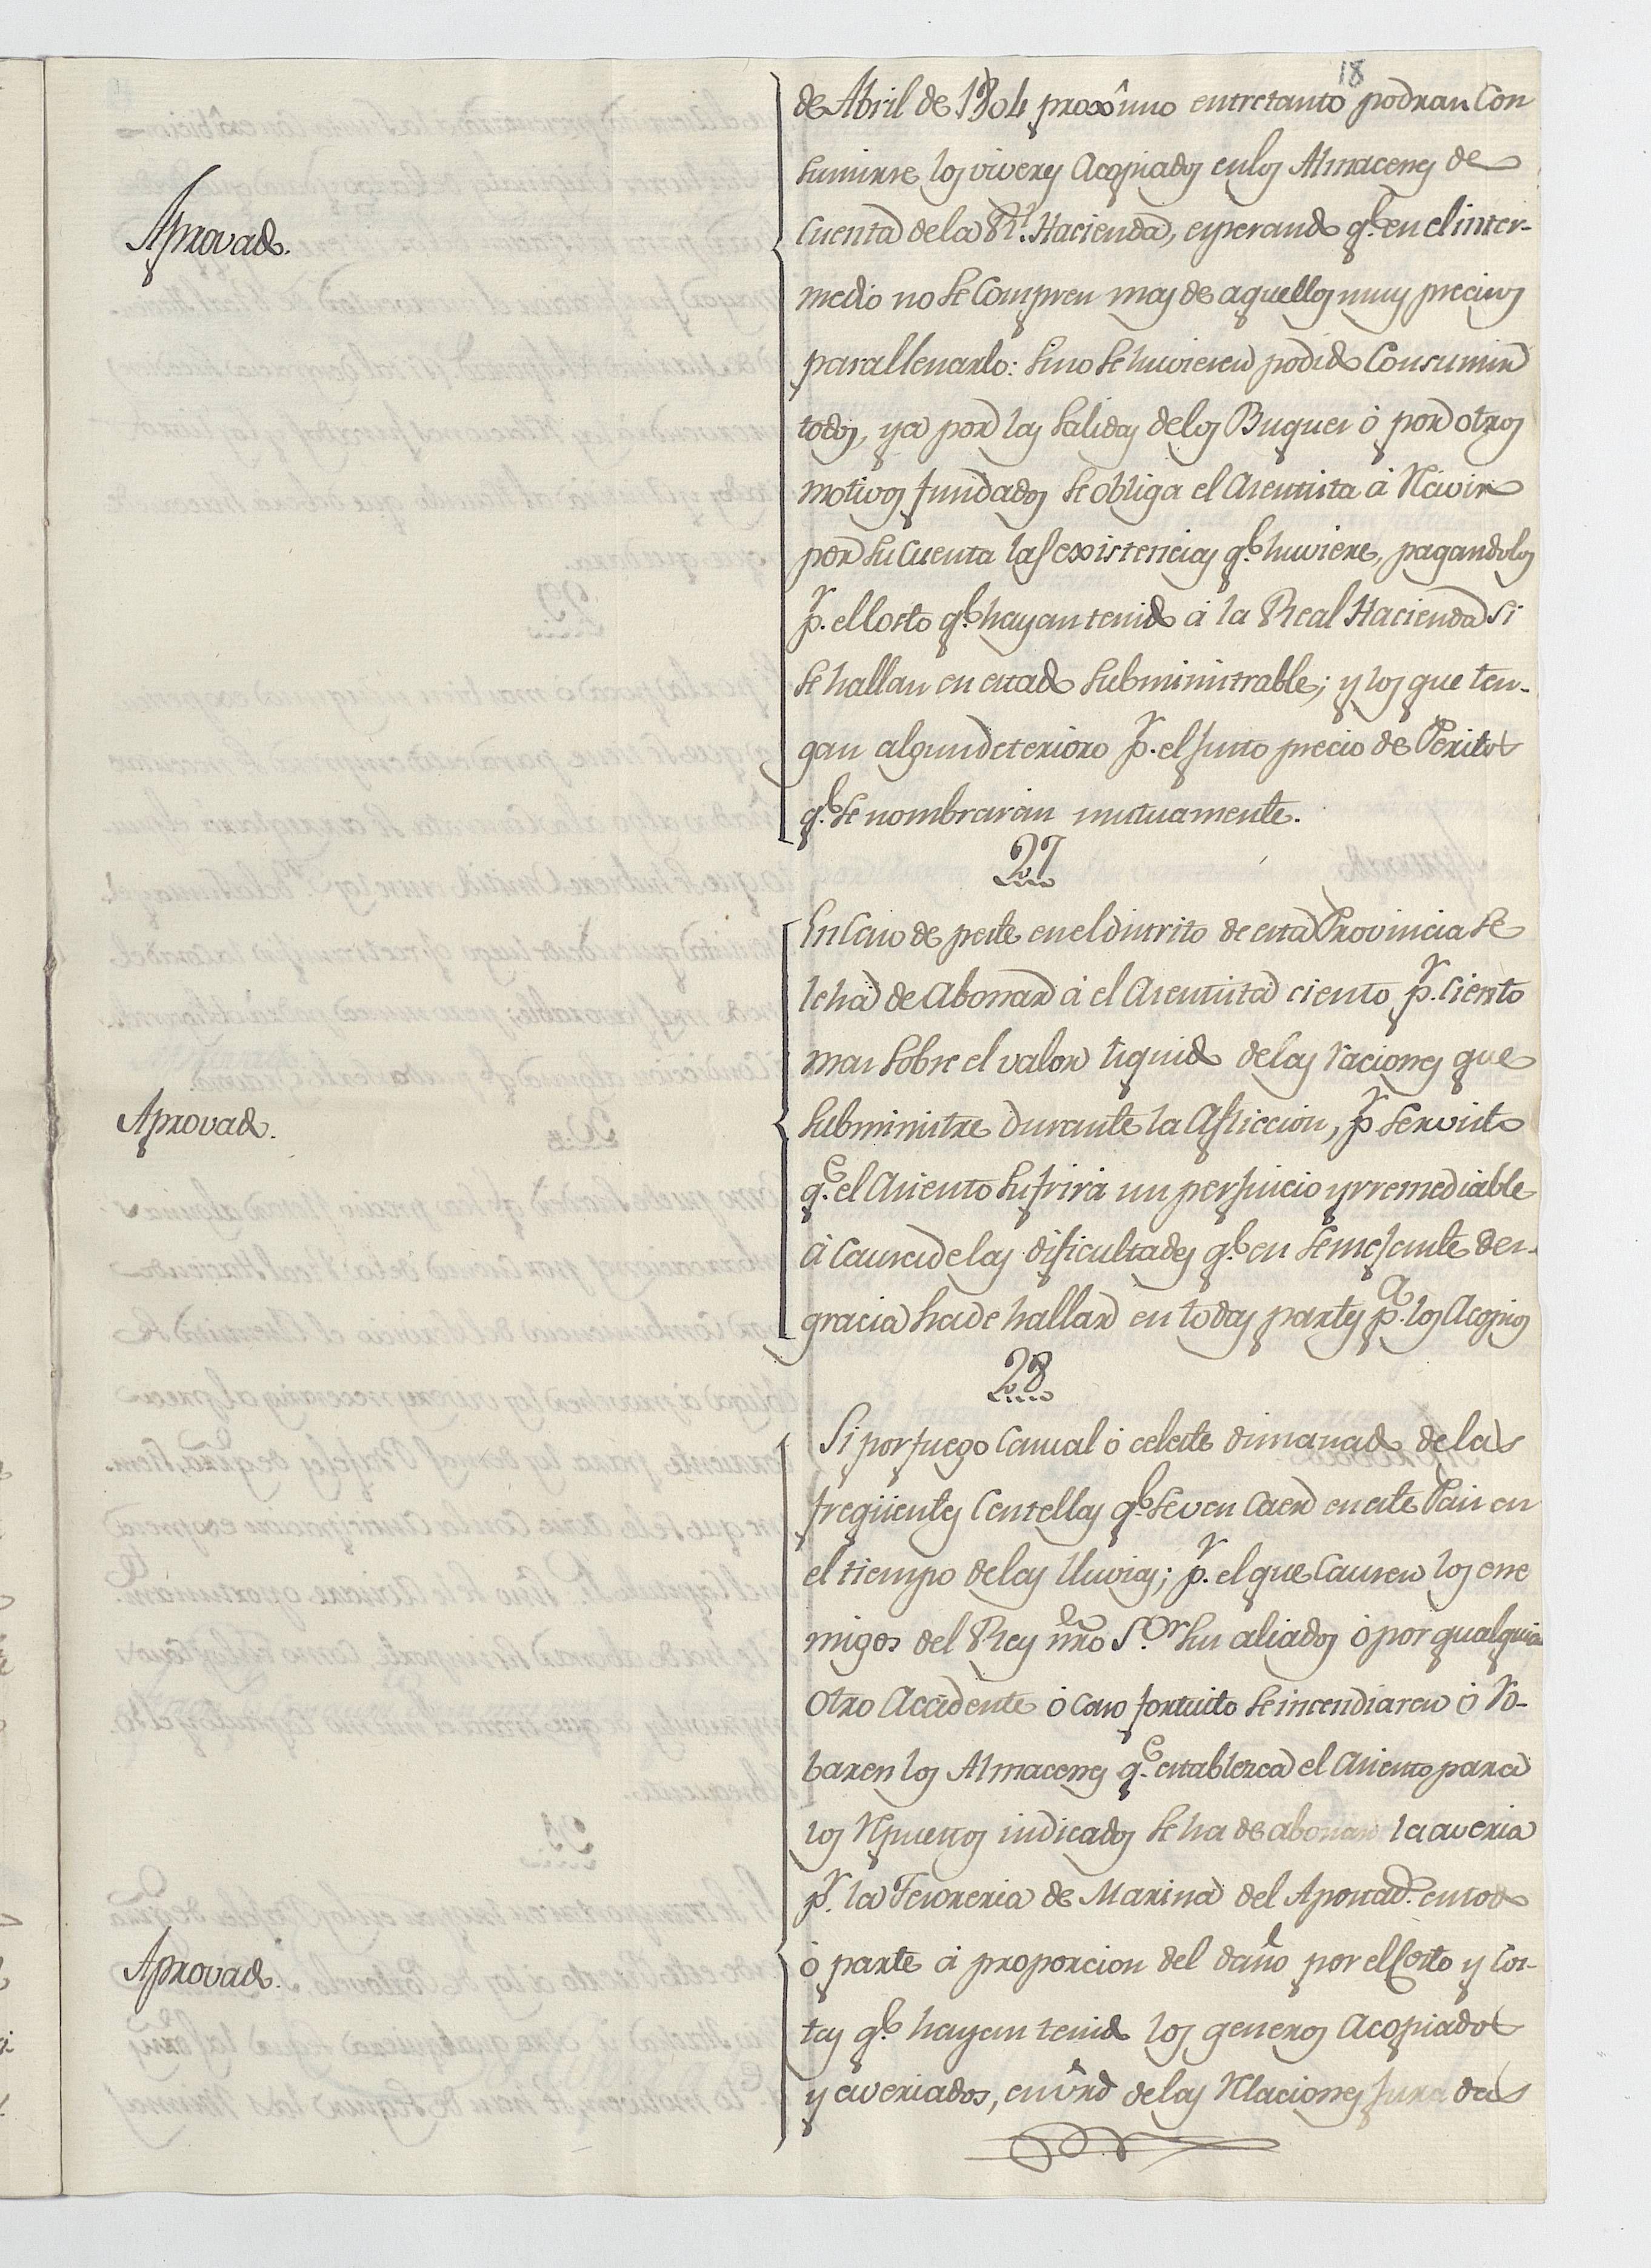 18
de Abril de 1804 proxîmo entretanto podran Con
sumirse los viveres Acopiados en los Almacenes de
Cuenta de la Rl. Hacienda, esperando qe. en el inter-
medio no se Compren mas de aquellos muy precisos
Aprovado.
para llenarlo: Si no se huvieren podido Consumir
todos, ya por las Salidas de los Buques ó por otros
motivos fundados se obliga el Asentista á Recivir
por su Cuenta las existencias qe. huviere, pagandolos
pr. el Costo qe. hayan tenido á la Real Hacienda si
se hallan en estado Subministrable; y los que ten-
gan algun deterioro pr. el justo precio de Peritos
qe. se nombrarán mutuamente.
27
En Caso de peste en el distrito de esta Provincia se
le ha de Abonar á el Asentista ciento pr. Ciento
mas sobre el valor liquido de las raciones que
Subministre durante la Afliccion, pr. ser visto
Aprovado.
qe. el Asiento Sufrirá un perjuicio yrremediable
á Causa de las dificultades qe. en Semejante des-
gracia ha de hallar en todas partes pa. los Acopios
28
Si por fuego Casual ó celeste dimanado de las
freqüentes Centellas qe. se ven Caer en este Pais en
el tiempo de las lluvias; pr. el que Causen los ene
migos del Rey nro. Sor. sus aliados ó por qualquier
Otro Accidente ó Caso fortuito se incendiaren ó Ro-
baren los Almacenes qe. establezca el Asiento para
los Rpuestos indicados se ha de abonar la averia
pr. la Tesoreria de Marina del Apostado. en todo
Aprovado.
ó parte á proporcion del daño por el Costo y Cos-
tas qe. hayan tenido los generos Acopiados
y averiados, en vrd. de las Rlaciones Juradas